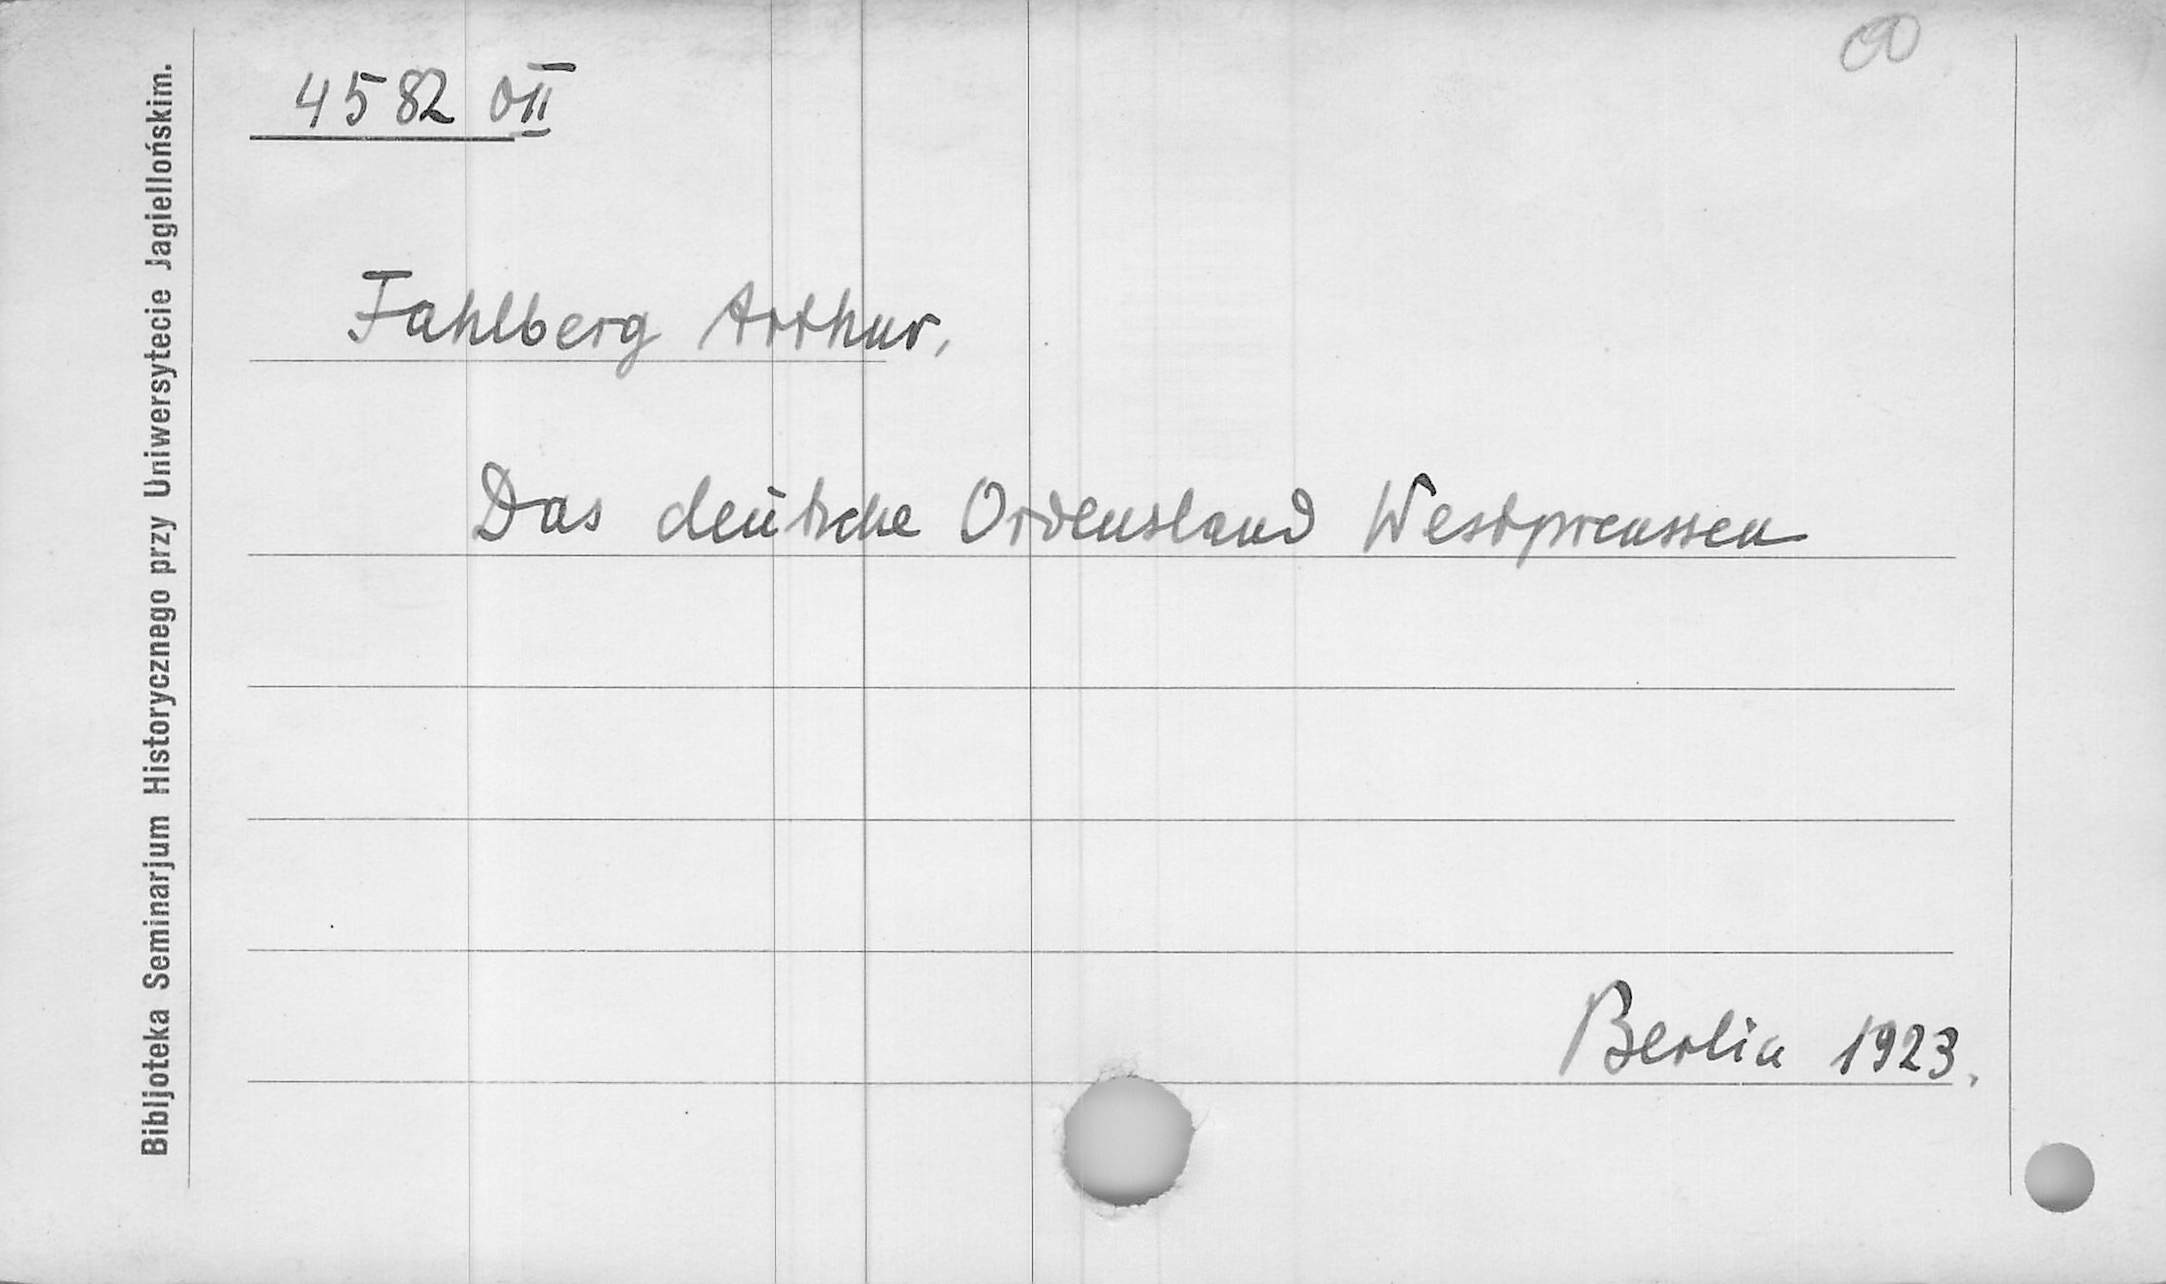 4582 OII
Fahlberg Arthur,
Das deutsche Ordensland Westpreussen
Berlin 1923.
Bibljoteka Seminarjum Historycznego przy Uniwersytecie Jagiellońskim.